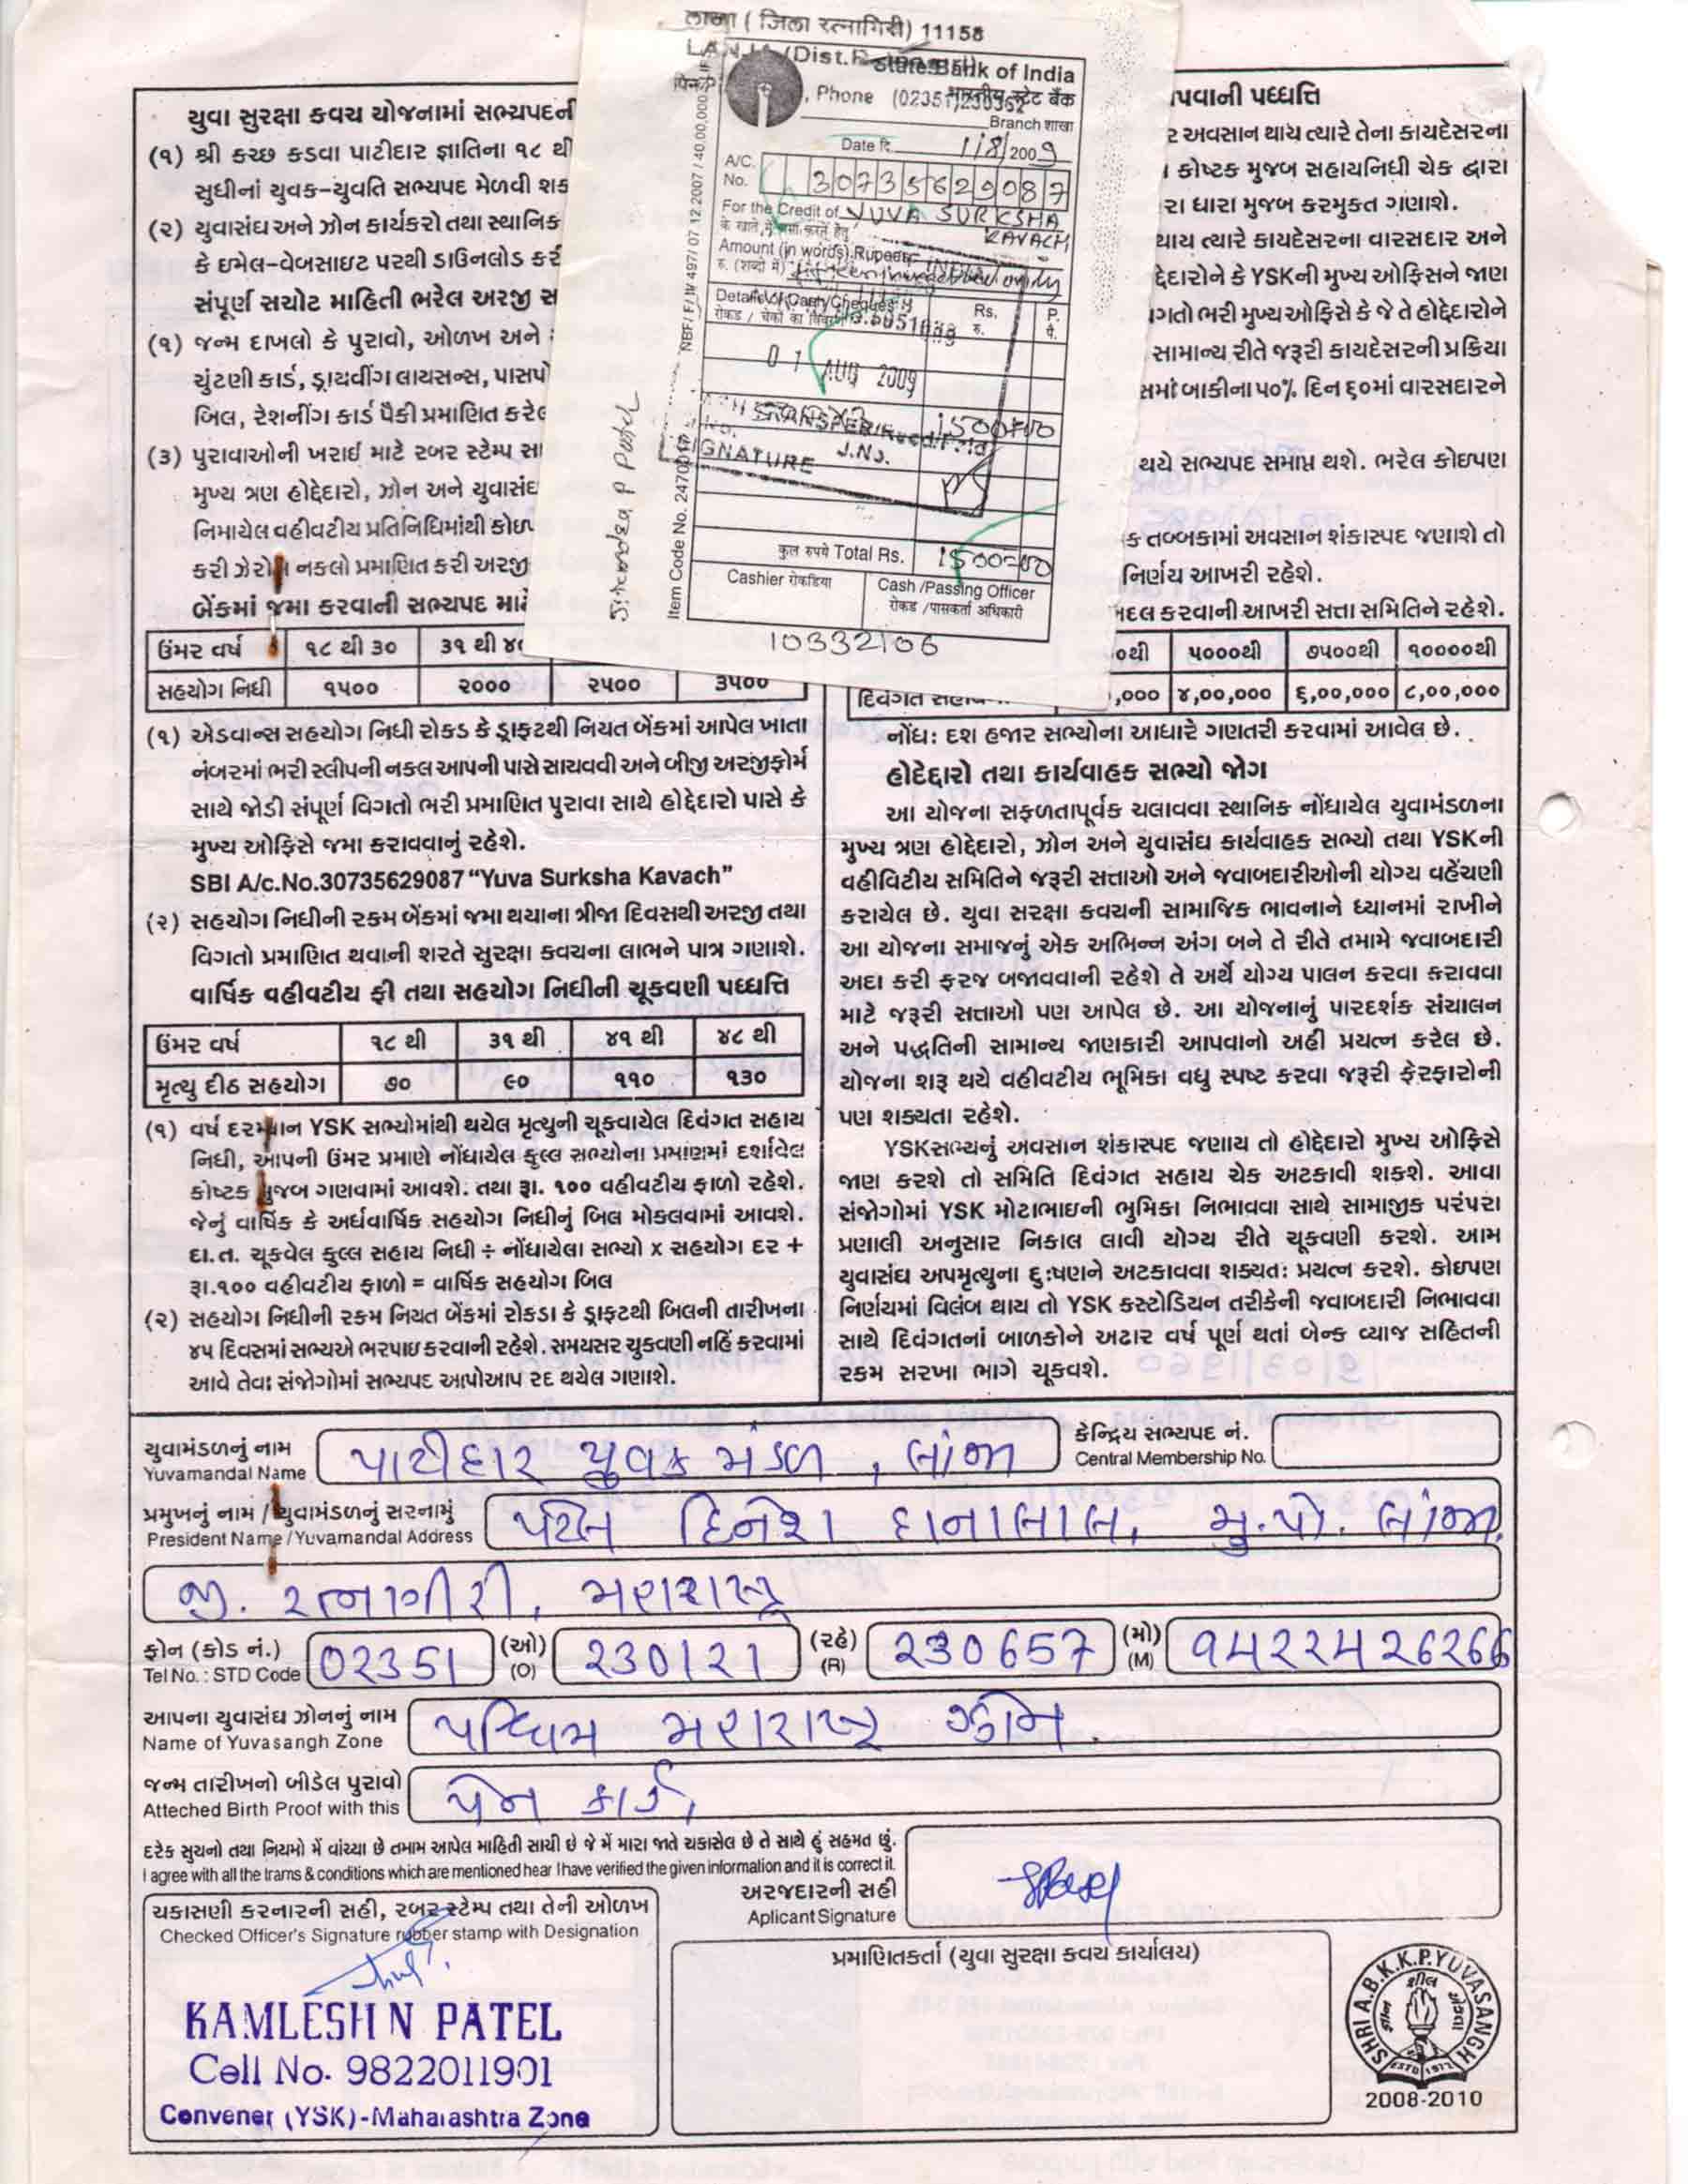 लांजा ( जिला रत्नागिरी) 11158
State Bank of India
भारतीय स्टेट बैंक
Phone (02351) 230362
Branch शाखा
Date दि. 1/8/2009
A/C. No. 30735629087
For the Credit of YUVA SURKSHA
KAVACH
Amount (in words) Rupees
रु. (शब्दो में)
Details of Cash/Cheques
Rs. P.
रु. पै.
01 AUG 2009
TRANSFER
1500=00
SIGNATURE J.No.
कुल रुपये Total Rs. 1500=00
Cashier रोकडिया
Cash /Passing Officer
रोकड /पासकर्ता अधिकारी
10332106
યુવા સુરક્ષા કવચ યોજનામાં સભ્યપદની
(૧) શ્રી કચ્છ કડવા પાટીદાર જ્ઞાતિના ૧૮ થી
સુધીનાં યુવક-યુવતિ સભ્યપદ મેળવી શક
(૨) યુવાસંઘ અને ઝોન કાર્યકરો તથા સ્થાનિક
કે ઇમેલ-વેબસાઇટ પરથી ડાઉનલોડ કરી
સંપૂર્ણ સચોટ માહિતી ભરેલ અરજી સ
(૧) જન્મ દાખલો કે પુરાવો, ઓળખ અને
ચુંટણી કાર્ડ, ડ્રાયવીંગ લાયસન્સ, પાસપો
બિલ, રેશનીંગ કાર્ડ પૈકી પ્રમાણિત કરેલ
(૩) પુરાવાઓની ખરાઇ માટે રબર સ્ટેમ્પ સા
મુખ્ય ત્રણ હોદ્દેદારો, ઝોન અને યુવાસંઘ
નિમાયેલ વહીવટીય પ્રતિનિધિમાંથી કોઇપ
કરી ઝેરોક્ષ નકલો પ્રમાણિત કરી અરજી
બેંકમાં જમા કરવાની સભ્યપદ માટે
ઉંમર વર્ષ ૧૮ થી ૩૦ ૩૧ થી ૪૦
સહયોગ નિધી ૧૫૦૦ ૨૦૦૦ ૨૫૦૦ ૩૫૦૦
(૧) એડવાન્સ સહયોગ નિધી રોકડ કે ડ્રાફટથી નિયત બેંકમાં આપેલ ખાતા
નંબરમાં ભરી સ્લીપની નકલ આપની પાસે સાચવવી અને બીજી અરજીફોર્મ
સાથે જોડી સંપૂર્ણ વિગતો ભરી પ્રમાણિત પુરાવા સાથે હોદ્દેદારો પાસે કે
મુખ્ય ઓફિસે જમા કરાવવાનું રહેશે.
SBI A/c.No.30735629087 “Yuva Surksha Kavach”
(૨) સહયોગ નિધીની રકમ બેંકમાં જમા થયાના ત્રીજા દિવસથી અરજી તથા
વિગતો પ્રમાણિત થવાની શરતે સુરક્ષા કવચના લાભને પાત્ર ગણાશે.
વાર્ષિક વહીવટીય ફી તથા સહયોગ નિધીની ચૂકવણી પધ્ધત્તિ
ઉંમર વર્ષ ૧૮ થી ૩૧ થી ૪૧ થી ૪૮ થી
મૃત્યુ દીઠ સહયોગ ૭૦ ૯૦ ૧૧૦ ૧૩૦
(૧) વર્ષ દરમ્યાન YSK સભ્યોમાંથી થયેલ મૃત્યુની ચૂકવાયેલ દિવંગત સહાય
નિધી, આપની ઉંમર પ્રમાણે નોંધાયેલ કુલ્લ સભ્યોના પ્રમાણમાં દર્શાવેલ
કોષ્ટક મુજબ ગણવામાં આવશે. તથા રૂા. ૧૦૦ વહીવટીય ફાળો રહેશે.
જેનું વાર્ષિક કે અર્ધવાર્ષિક સહયોગ નિધીનું બિલ મોકલવામાં આવશે.
દા.ત. ચૂકવેલ કુલ્લ સહાય નિધી ÷ નોંધાયેલા સભ્યો x સહયોગ દર +
રૂા.૧૦૦ વહીવટીય ફાળો = વાર્ષિક સહયોગ બિલ
(૨) સહયોગ નિધીની રકમ નિયત બેંકમાં રોકડા કે ડ્રાફટથી બિલની તારીખના
૪૫ દિવસમાં સભ્યએ ભરપાઇ કરવાની રહેશે. સમયસર ચુકવણી નહિં કરવામાં
આવે તેવા સંજોગોમાં સભ્યપદ આપોઆપ રદ થયેલ ગણાશે.
પવાની પધ્ધત્તિ
ર અવસાન થાય ત્યારે તેના કાયદેસરના
કોષ્ટક મુજબ સહાયનિધી ચેક દ્વારા
રા ધારા મુજબ કરમુકત ગણાશે.
થાય ત્યારે કાયદેસરના વારસદાર અને
દ્દેદારોને કે YSKની મુખ્ય ઓફિસને જાણ
ગતો ભરી મુખ્ય ઓફિસે કે જે તે હોદ્દેદારોને
સામાન્ય રીતે જરૂરી કાયદેસરની પ્રકિયા
સમાં બાકીના ૫૦% દિન ૬૦માં વારસદારને
થયે સભ્યપદ સમાપ્ત થશે. ભરેલ કોઇપણ
ક તબ્બકામાં અવસાન શંકાસ્પદ જણાશે તો
નિર્ણય આખરી રહેશે.
બદલ કરવાની આખરી સત્તા સમિતિને રહેશે.
૦થી ૫૦૦૦થી ૭૫૦૦થી ૧૦૦૦૦થી
દિવંગત ,૦૦૦ ૪,૦૦,૦૦૦ ૬,૦૦,૦૦૦ ૮,૦૦,૦૦૦
નોંધ: દશ હજાર સભ્યોના આધારે ગણતરી કરવામાં આવેલ છે.
હોદેદ્દારો તથા કાર્યવાહક સભ્યો જોગ
આ યોજના સફળતાપૂર્વક ચલાવવા સ્થાનિક નોંધાયેલ યુવામંડળના
મુખ્ય ત્રણ હોદ્દેદારો, ઝોન અને યુવાસંઘ કાર્યવાહક સભ્યો તથા YSKની
વહીવિટીય સમિતિને જરૂરી સત્તાઓ અને જવાબદારીઓની યોગ્ય વહેંચણી
કરાયેલ છે. યુવા સરક્ષા કવચની સામાજિક ભાવનાને ધ્યાનમાં રાખીને
આ યોજના સમાજનું એક અભિન્ન અંગ બને તે રીતે તમામે જવાબદારી
અદા કરી ફરજ બજાવવાની રહેશે તે અર્થે યોગ્ય પાલન કરવા કરાવવા
માટે જરૂરી સત્તાઓ પણ આપેલ છે. આ યોજનાનું પારદર્શક સંચાલન
અને પદ્ધતિની સામાન્ય જાણકારી આપવાનો અહી પ્રયત્ન કરેલ છે.
યોજના શરૂ થયે વહીવટીય ભૂમિકા વધુ સ્પષ્ટ કરવા જરૂરી ફેરફારોની
પણ શક્યતા રહેશે.
YSKસભ્યનું અવસાન શંકાસ્પદ જણાય તો હોદ્દેદારો મુખ્ય ઓફિસે
જાણ કરશે તો સમિતિ દિવંગત સહાય ચેક અટકાવી શકશે. આવા
સંજોગોમાં YSK મોટાભાઇની ભુમિકા નિભાવવા સાથે સામાજીક પરંપરા
પ્રણાલી અનુસાર નિકાલ લાવી યોગ્ય રીતે ચૂકવણી કરશે. આમ
યુવાસંઘ અપમૃત્યુના દુઃષણને અટકાવવા શક્યતઃ પ્રયત્ન કરશે. કોઇપણ
નિર્ણયમાં વિલંબ થાય તો YSK કસ્ટોડિયન તરીકેની જવાબદારી નિભાવવા
સાથે દિવંગતનાં બાળકોને અઢાર વર્ષ પૂર્ણ થતાં બેન્ક વ્યાજ સહિતની
રકમ સરખા ભાગે ચૂકવશે.
યુવામંડળનું નામ
Yuvamandal Name પાટીદાર યુવક મંડળ , લાંજા
કેન્દ્રિય સભ્યપદ નં.
Central Membership No.
પ્રમુખનું નામ / યુવામંડળનું સરનામું
President Name / Yuvamandal Address પટેલ દિનેશ દાનાલાલ, મુ.પો. લાંજા,
જી. રત્નાગીરી, મહારાષ્ટ્ર
ફોન (કોડ નં.) (ઓ) (રહે) (મો)
Tel No. : STD Code 02351 (O) 230121 (R) 230657 (M) 9422426266
આપના યુવાસંઘ ઝોનનું નામ
Name of Yuvasangh Zone પશ્ચિમ મહારાષ્ટ્ર ઝોન.
જન્મ તારીખનો બીડેલ પુરાવો
Atteched Birth Proof with this પેન કાર્ડ,
દરેક સુચનો તથા નિયમો મેં વાંચ્યા છે તમામ આપેલ માહિતી સાચી છે જે મેં મારા જાતે ચકાસેલ છે તે સાથે હું સહમત છું.
I agree with all the trams & conditions which are mentioned hear I have verified the given information and it is correct it.
અરજદારની સહી
Aplicant Signature
ચકાસણી કરનારની સહી, રબર સ્ટેમ્પ તથા તેની ઓળખ
Checked Officer's Signature rubber stamp with Designation
KAMLESH N PATEL
Cell No. 9822011901
Convener (YSK)-Maharashtra Zone
પ્રમાણિતકર્તા (યુવા સુરક્ષા કવચ કાર્યાલય)
SHRI A.B.K.K.P.YUVASANGH
2008-2010